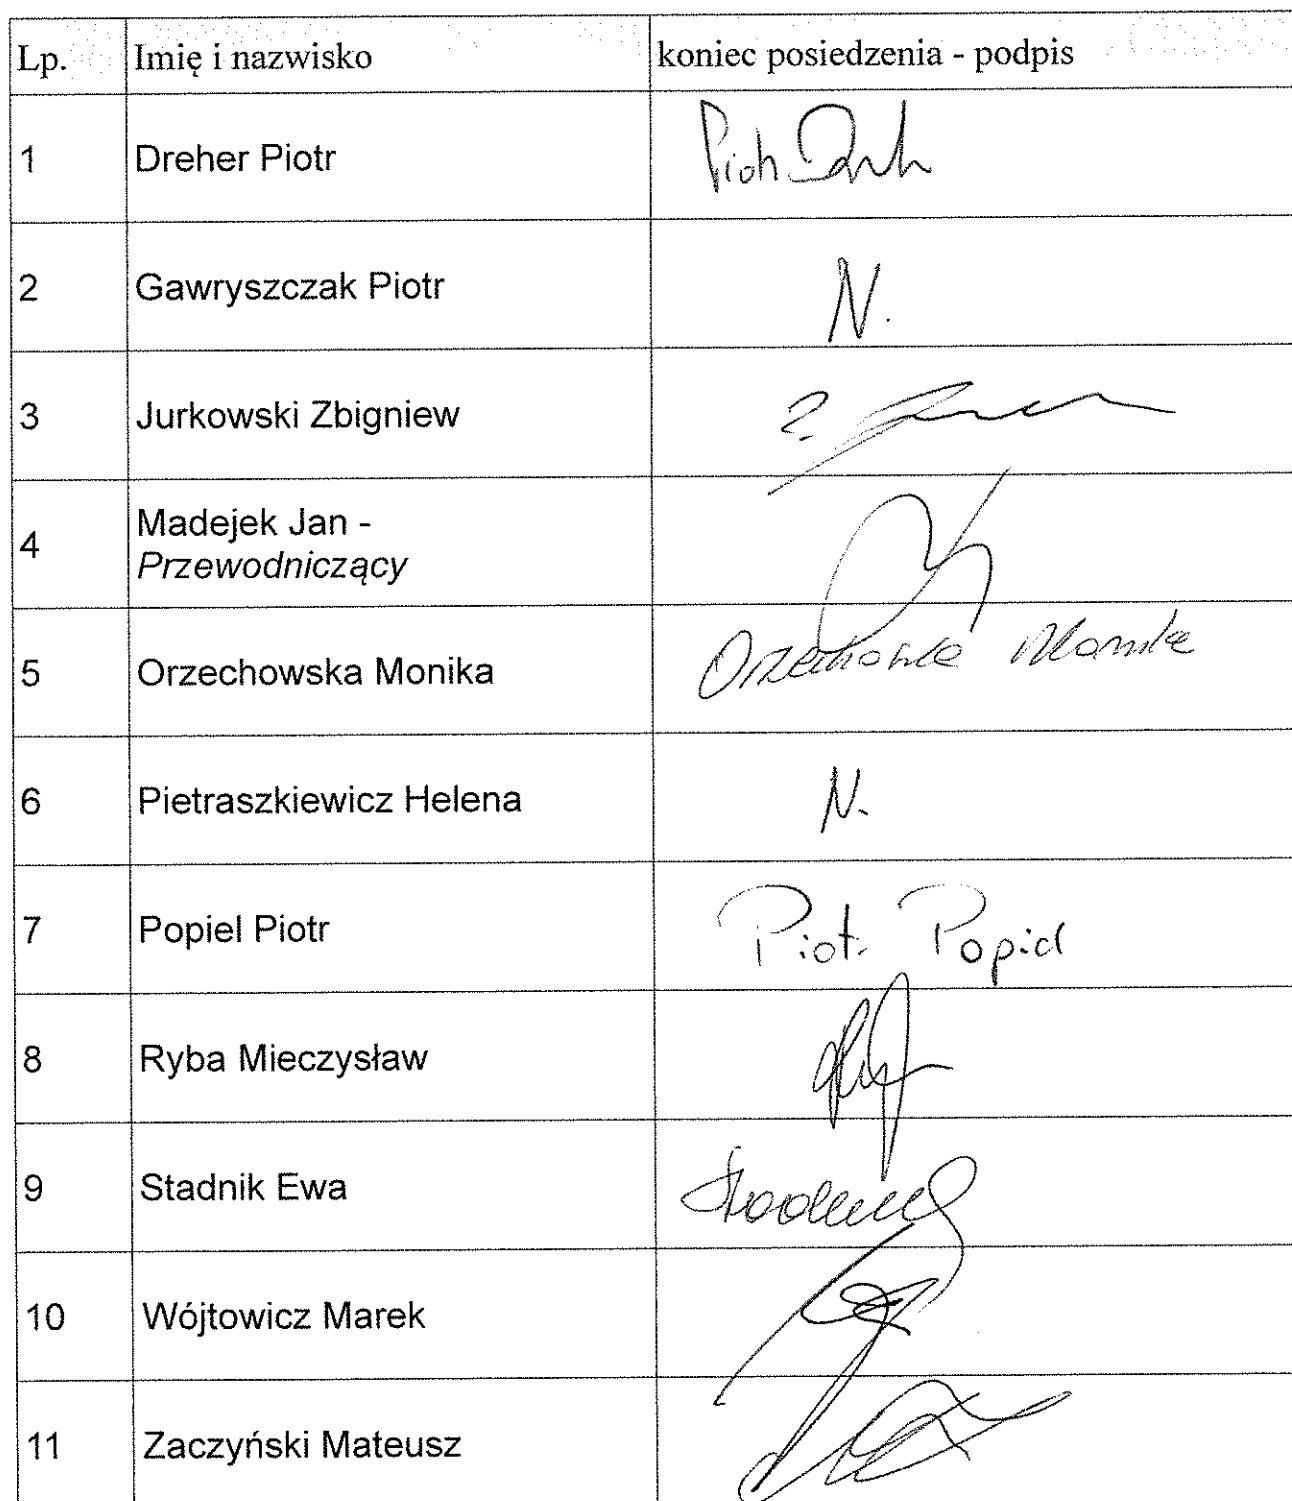 Lp. Imię i nazwisko koniec posiedzenia - podpis
1 Dreher Piotr
2 Gawryszczak Piotr N.
3 Jurkowski Zbigniew
4 Madejek Jan -
Przewodniczący
5 Orzechowska Monika Orzechowska Monika
6 Pietraszkiewicz Helena N.
7 Popiel Piotr Piotr Popiel
8 Ryba Mieczysław
9 Stadnik Ewa
10 Wójtowicz Marek
11 Zaczyński Mateusz